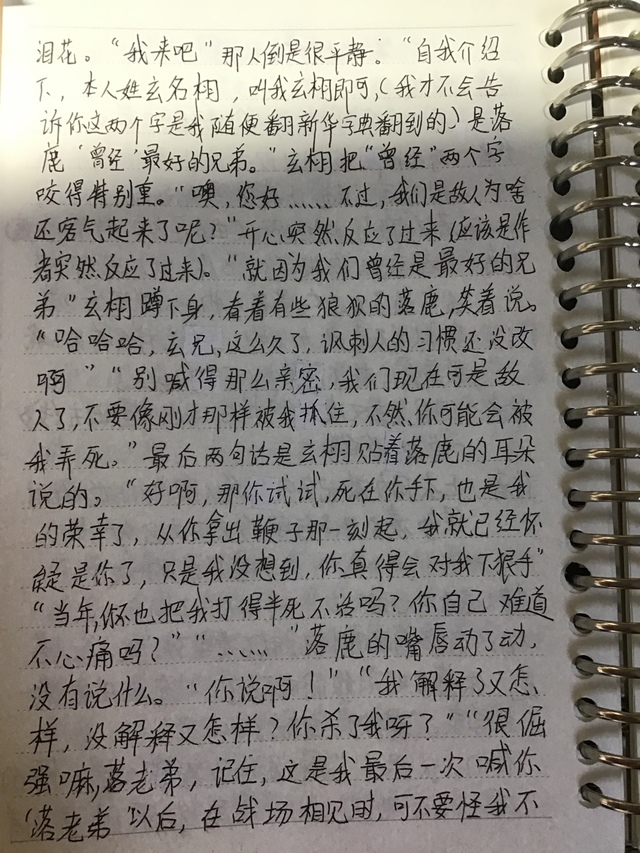 泪花。“我来吧”那人倒是很平静。“自我介绍
下，本人姓玄名栩，叫我玄栩即可，(我才不会告
诉你这两个字是我随便翻新华字典翻到的)是落
鹿‘曾经’最好的兄弟。”玄栩把“曾经”两个字
咬得特别重。“噢，您好……不过，我们是故人为啥
还客气起来了呢？”开心突然反应了过来(应该是作
者突然反应了过来)。“就因为我们曾经是最好的兄
弟”玄栩蹲下身，看着有些狼狈的落鹿，笑着说。
“哈哈哈，玄兄，这么久了，讽刺人的习惯还没改
啊”“别喊得那么亲密，我们现在可是故
人了，不要像刚才那样被我抓住，不然，你可能会被
我弄死。”最后两句话是玄栩贴着落鹿的耳朵
说的。“好啊，那你试试，死在你手下，也是我
的荣幸了，从你拿出鞭子那一刻起，我就已经怀
疑是你了，只是我没想到，你真得会对我下狠手”
“当年，你不也把我打得半死不活吗？你自己难道
不心痛吗？”“……”落鹿的嘴唇动了动，
没有说什么。“你说啊！”“我解释了又怎
样，没解释又怎样？你杀了我呀？”“很倔
强嘛，落老弟，记住，这是我最后一次喊你
‘落老弟’以后，在战场相见时，可不要怪我不